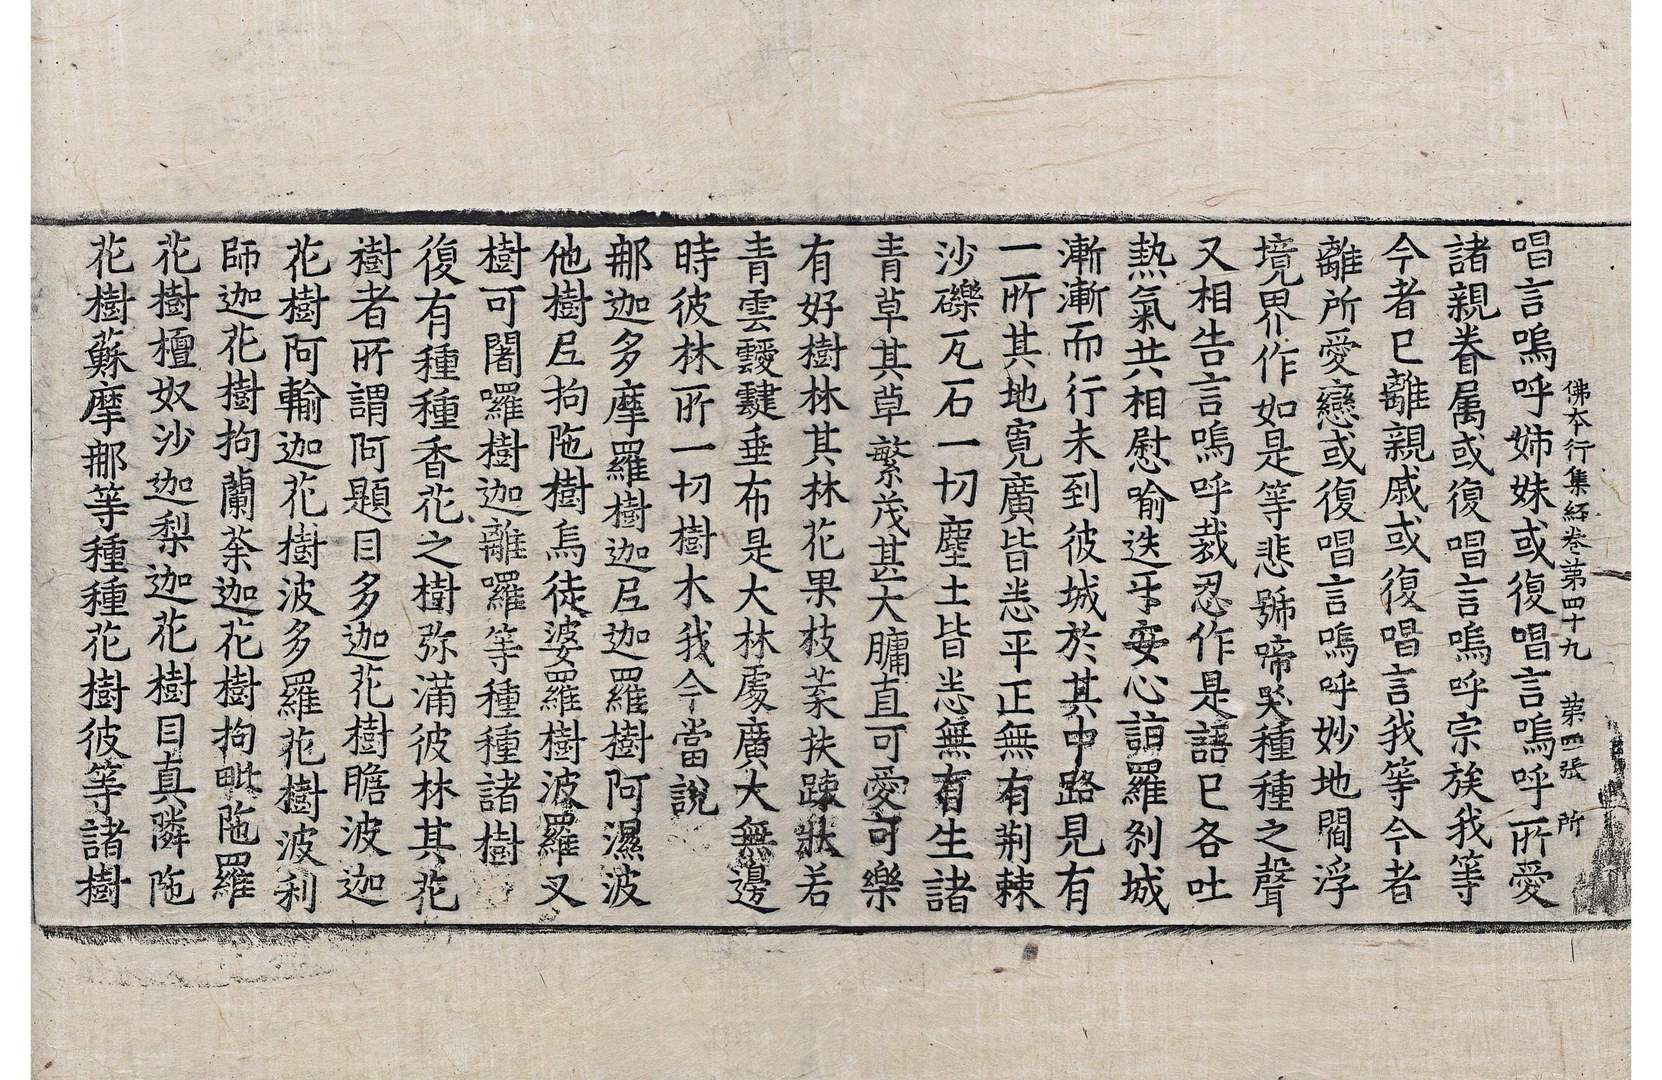 佛本行集経卷第四十九 第四張 所
唱言嗚呼姉妹或復唱言嗚呼所愛
諸親眷属或復唱言嗚呼宗族我等
今者已離親戚或復唱言我等今者
離所愛戀或復唱言嗚呼妙地閻浮
境界作如是等悲號啼哭種種之聲
又相告言嗚呼裁忍作是語已各吐
熱氣共相慰喻迭𠄔安心詣羅刹城
漸漸而行未到彼城於其中路見有
一所其地寛廣皆悉平正無有荆棘
沙礫瓦石一切塵土皆悉無有生諸
青草其草繁茂甚大牗直可愛可樂
有好樹林其林花果枝葉扶踈狀若
青雲靉靆垂布是大林處廣大無邊
時彼林所一切樹木我今當說
那迦多摩羅樹迦尼迦羅樹阿濕波
他樹尼拘陁樹烏徒婆羅樹波羅叉
樹可闍囉樹迦離囉等種種諸樹
復有種種香花之樹弥滿彼林其花
樹者所謂阿題目多迦花樹瞻波迦
花樹阿輸迦花樹波多羅花樹波利
師迦花樹拘蘭荼迦花樹拘毗陁羅
花樹檀奴沙迦梨迦花樹目真隣陁
花樹蘇摩那等種種花樹彼等諸樹